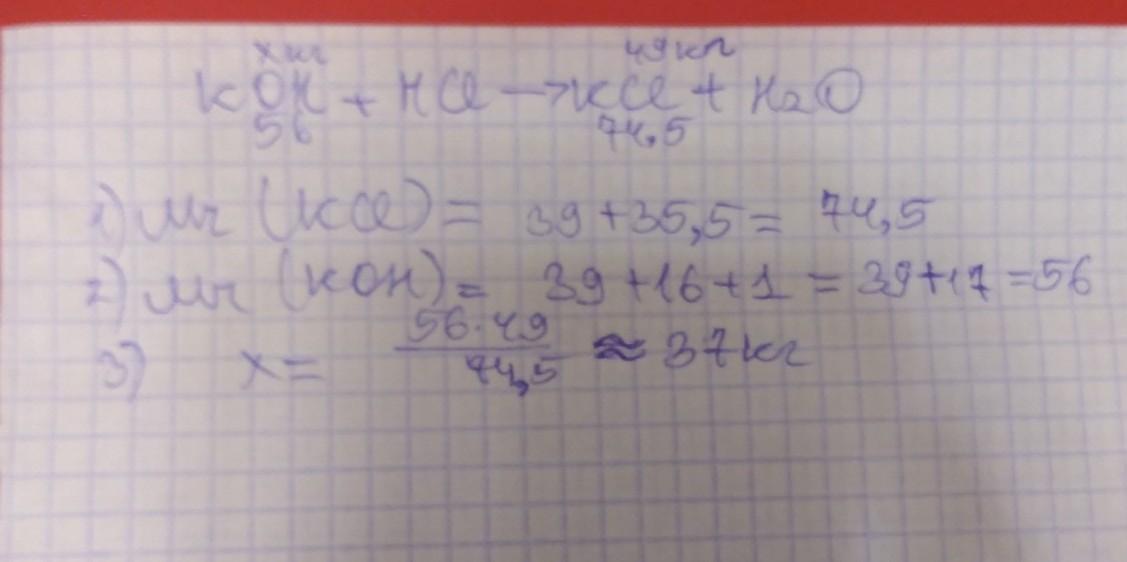 x кг 49 кг
KOH + HCl → KCl + H2O
56 74,5
1) Mr (KCl) = 39 + 35,5 = 74,5
2) Mr (KOH) = 39 + 16 + 1 = 39 + 17 = 56
56 · 49
3) x = ≈ 37 кг
74,5